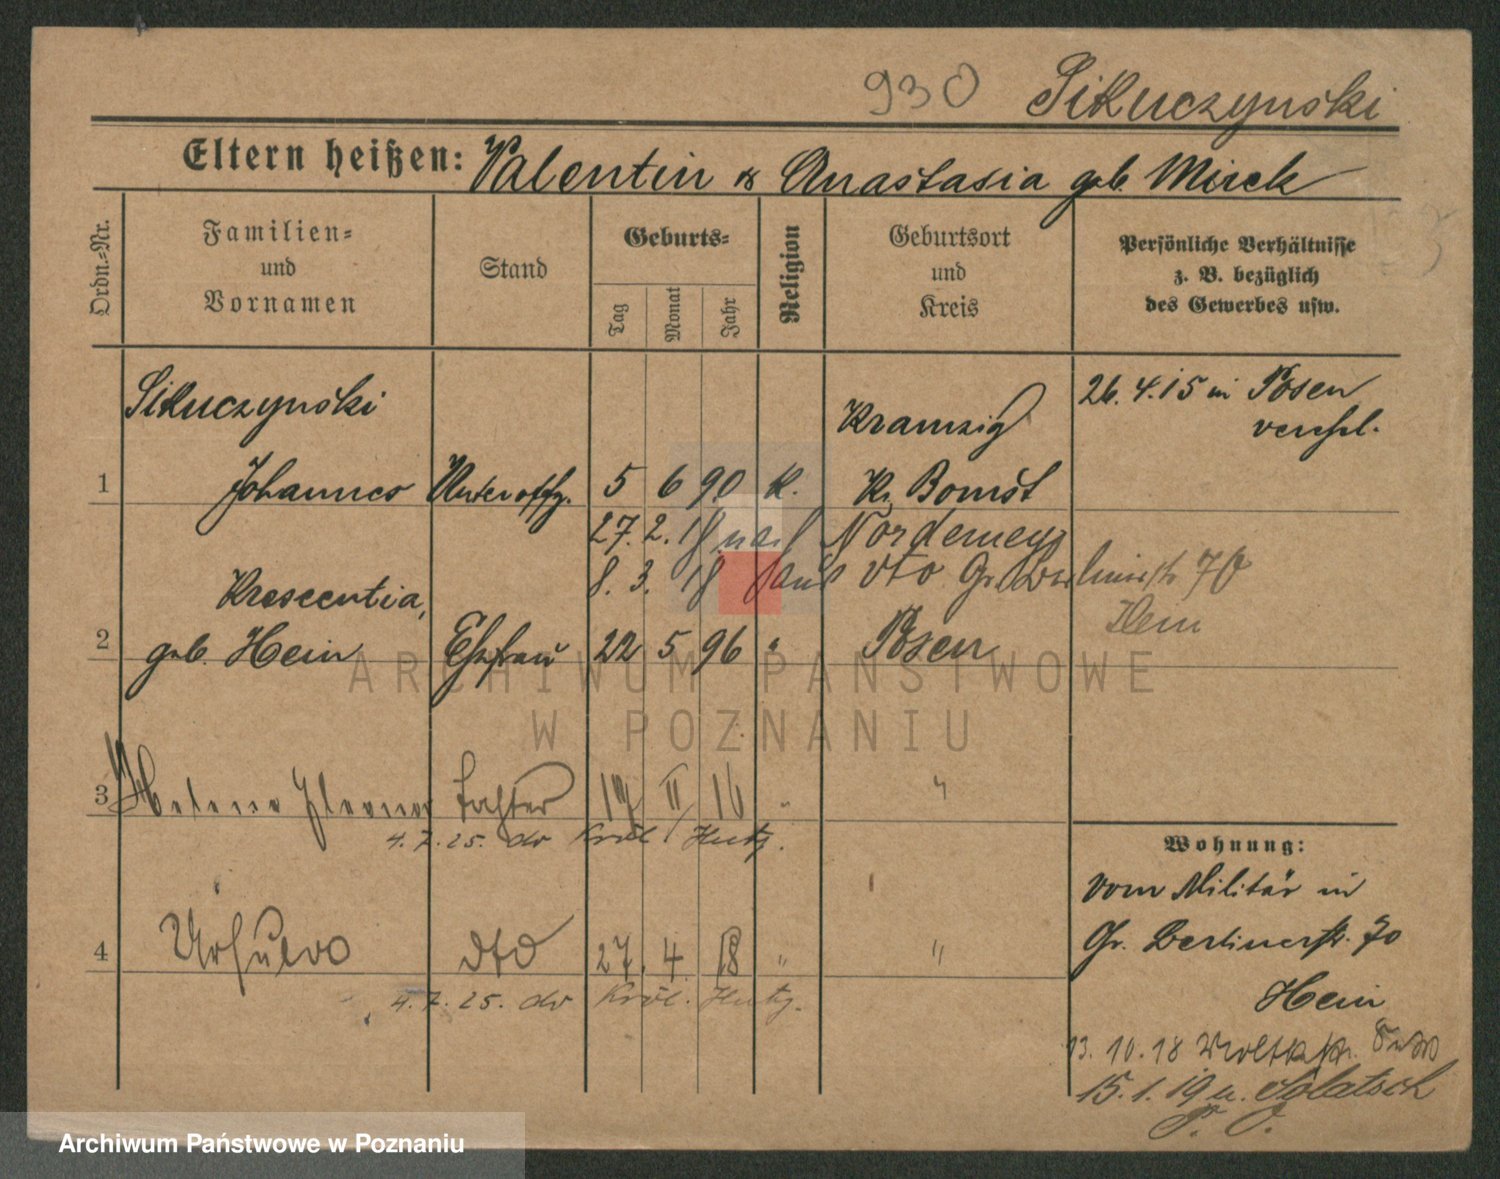 930 Sikuczynski
Eltern heißen: Valentin & Anastasia geb. Mirek
Ordn.-Nr.
Familien-
und
Vornamen
Stand
Geburts-
Tag
Monat
Jahr
Religion
Geburtsort
und
Kreis
Persönliche Verhältnisse
z. B. bezüglich
des Gewerbes usw.
Sikuczynski
Kramzig
26.4.15 in Posen
verehel.
1 Johannes Unteroffz. 5 6 90 k. Kr. Bomst
27. 2. 18 nach Norderney
8. 3. 18 dto Gr. Berlinerstr. 70
Hein
Krescentia,
2 geb. Hein Ehefrau 22 5 96 " Posen
3 Helene Tochter 17 II 16 " "
4. 7. 25.
4 dto 27. 4. 18 " "
4. 7. 25.
Wohnung:
vom Militär in
Gr. Berlinerstr. 70
Hein
13. 10. 18
15. 1. 19
P. O.
ARCHIWUM PAŃSTWOWE
W POZNANIU
Archiwum Państwowe w Poznaniu